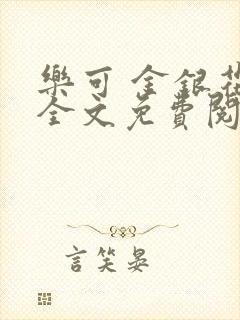 樂可 金銀花
全文免費閱
言笑晏